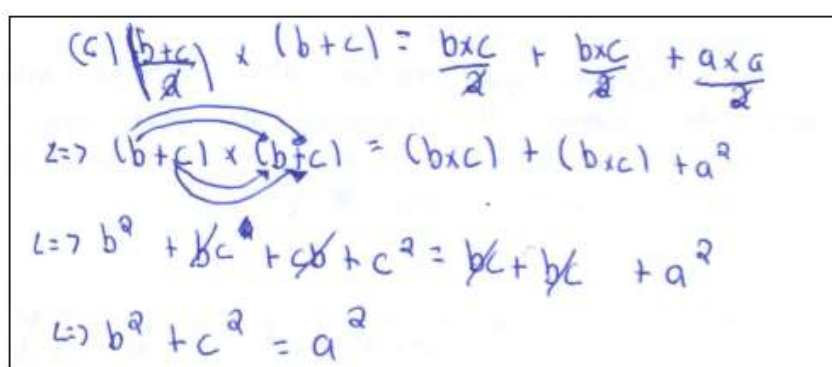 (c) (b+c)/2 × (b+c) = b×c/2 + b×c/2 + a×a/2
<=> (b+c) × (b+c) = (b×c) + (b×c) + a²
<=> b² + bc + cb + c² = bc + bc + a²
<=> b² + c² = a²